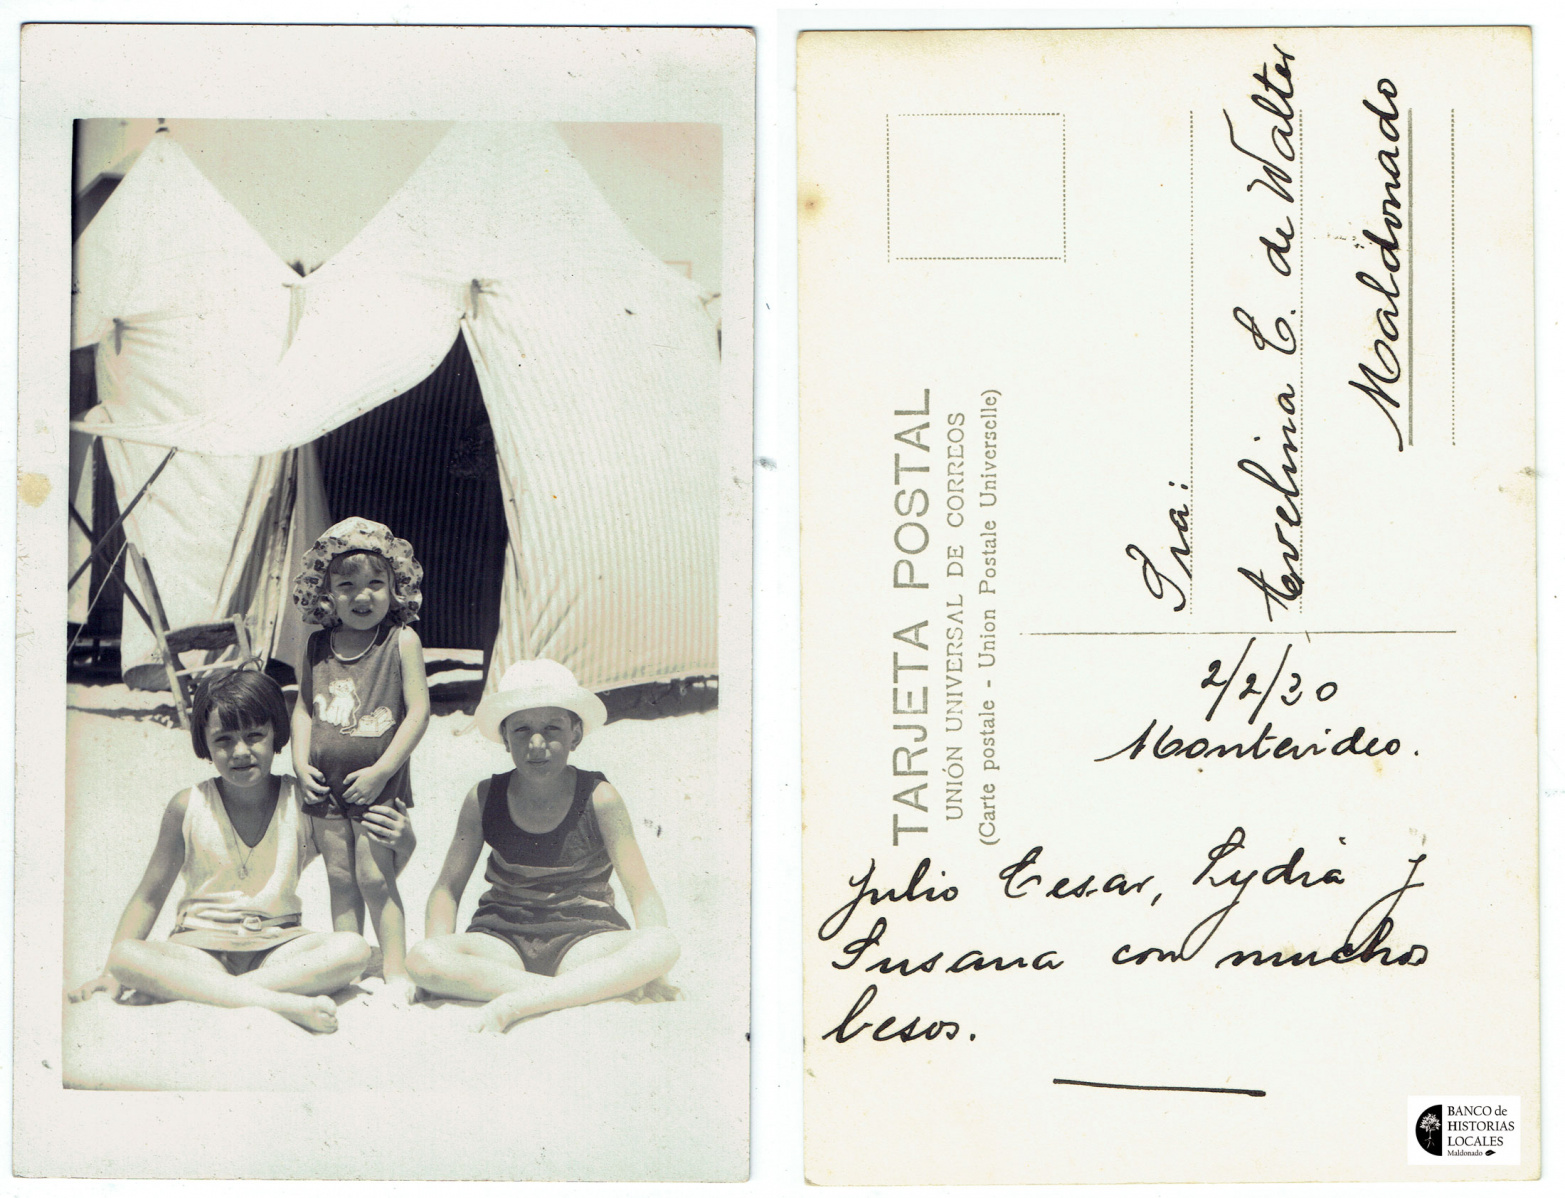 TARJETA POSTAL
UNIÓN UNIVERSAL DE CORREOS
(Carte postale - Union Postale Universelle)
Sra:
Avelina C. de Walter
Maldonado
2/2/30
Montevideo.
Julio Cesar, Lydia y
Susana con muchos
besos.
BANCO de
HISTORIAS
LOCALES
Maldonado